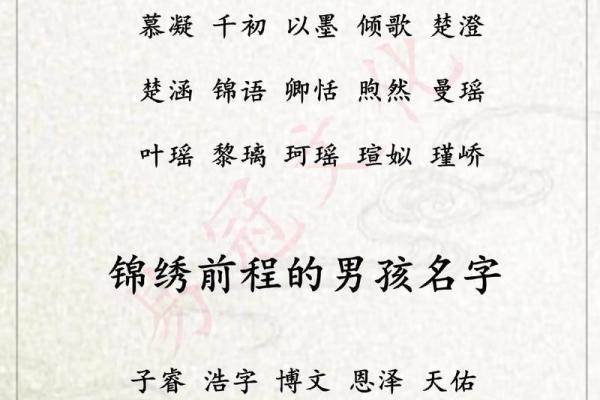 慕凝 千初 以墨 倾歌 楚澄
楚涵 锦语 卿恬 煦然 曼瑶
叶瑶 黎璃 珂瑶 瑄姒 瑾峤
锦绣前程的男孩名字
子睿 浩宇 博文 恩泽 天佑
易冠文化